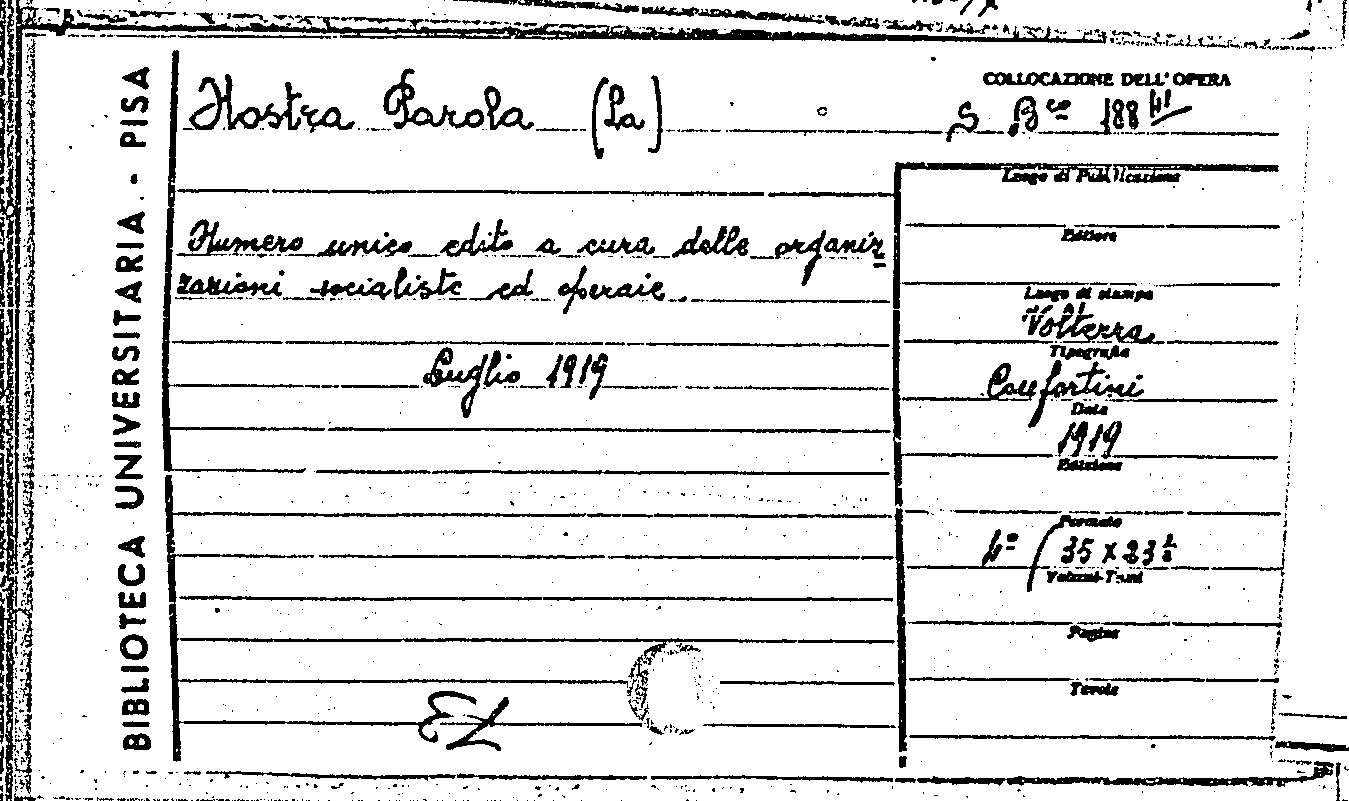 BIBLIOTECA UNIVERSITARIA - PISA
Nostra Parola (La)
COLLOCAZIONE DELL'OPERA
S Bco 188
Numero unico edito a cura delle organiz
zazioni socialiste ed operaie.
Luglio 1919
Luogo di Pubblicazione
Editore
Luogo di stampa
Volterra
Tipografia
Confortini
Data
1919
Edizione
Formato
4º (35 x 23 ½
Volumi-Tomi
Pagine
Tavole